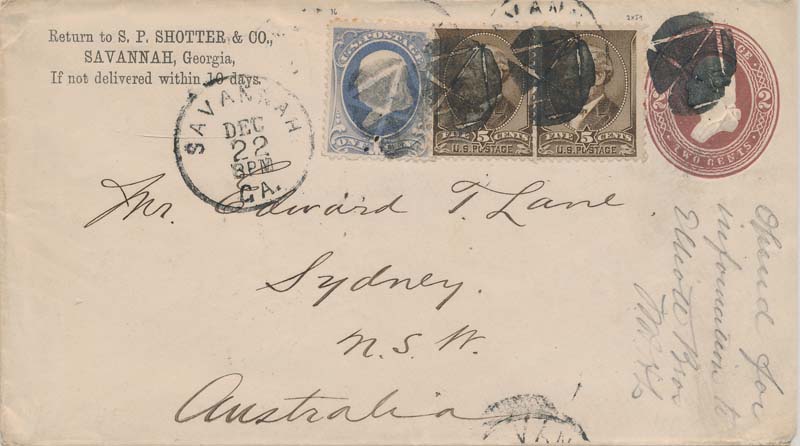 Return to S. P. SHOTTER & CO.,
SAVANNAH, Georgia,
If not delivered within 10 days.
SAVANNAH
DEC
22
8PM
GA.
U.S. POSTAGE
ONE
FIVE 5 CENTS
U.S. POSTAGE
FIVE 5 CENTS
U.S. POSTAGE
2
TWO CENTS
Mr. Edward T. Lane.
Sydney.
N. S. W.
Australia
Opend for
information to
Elliott Bros